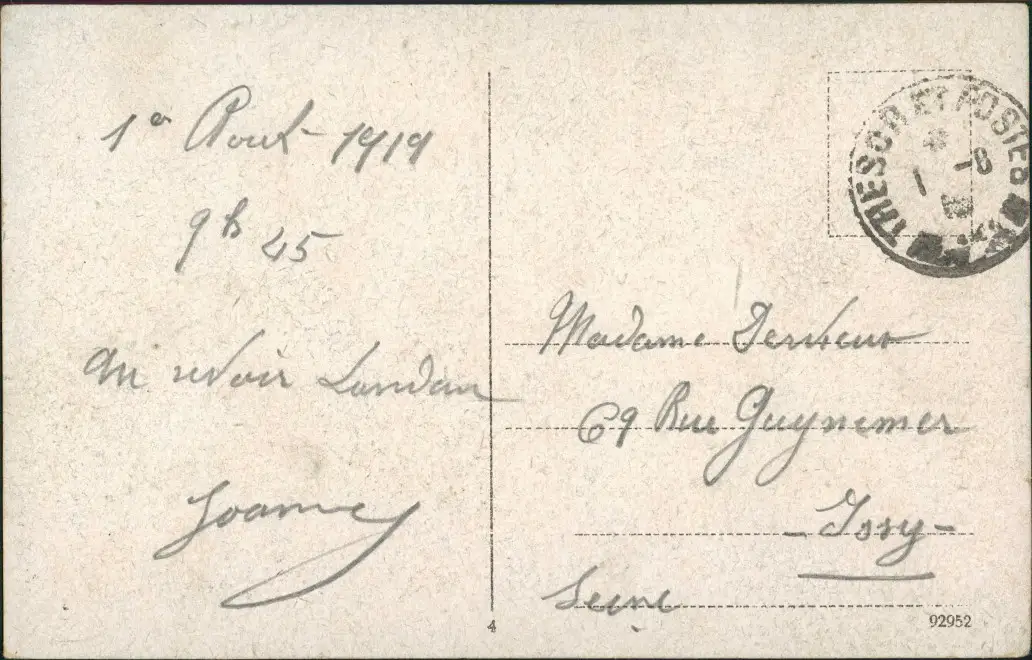 1er Aout 1919
9h 25
Au revoir Landau
Joanny
TRESOR ET POSTES
1 -8
Madame
69 Rue Guynemer
- Issy -
Seine
4
92952